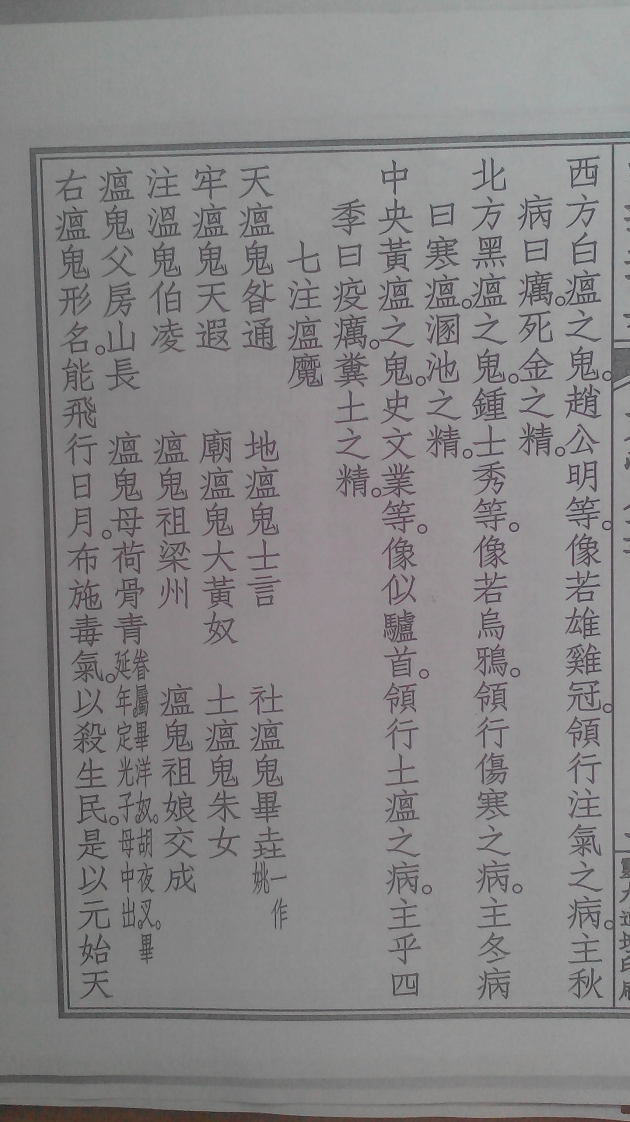 西方白瘟之鬼。趙公明等。像若雄雞冠。領行注氣之病。主秋
病曰癘。死金之精。
北方黑瘟之鬼。鍾士秀等。像若烏鴉。領行傷寒之病。主冬病
曰寒瘟。溷池之精。
中央黃瘟之鬼。史文業等。像似驢首。領行土瘟之病。主乎四
季曰疫癘。糞土之精。
七注瘟魔
天瘟鬼昝通 地瘟鬼士言 社瘟鬼畢垚一作姚
牢瘟鬼天遐 廟瘟鬼大黃奴 土瘟鬼朱女
注溫鬼伯凌 瘟鬼祖梁州 瘟鬼祖娘交成
瘟鬼父房山長 瘟鬼母荷骨青眷屬畢洋奴。胡夜叉。畢延年。定光子母中出。
右瘟鬼形名。能飛行日月。布施毒氣。以殺生民。是以元始天